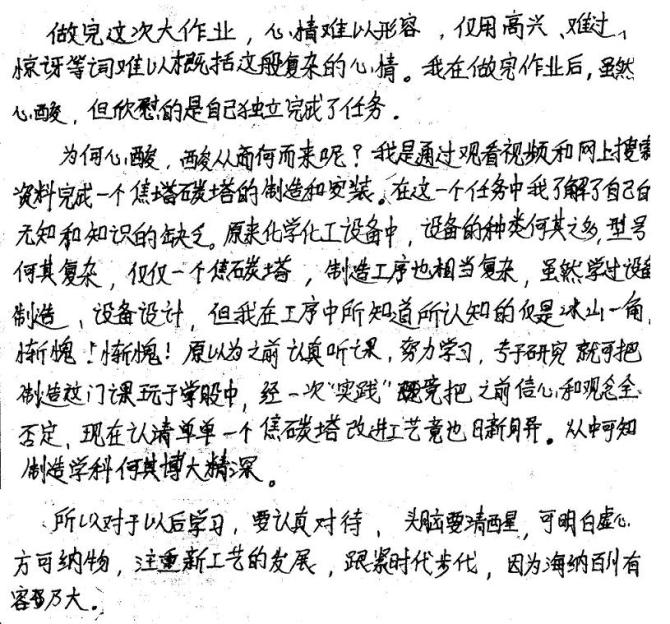 做完这次大作业，心情难以形容，仅用高兴、难过、
惊讶等词难以概括这般复杂的心情。我在做完作业后，虽然
心酸，但欣慰的是自己独立完成了任务。
为何心酸，酸从何而来呢？我是通过观看视频和网上搜索
资料完成一个焦塔碳塔的制造和安装。在这一个任务中我了解了自己的
无知和知识的缺乏。原来化学化工设备中，设备的种类何其之多，型号
何其复杂，仅仅一个焦碳塔，制造工序也相当复杂，虽然学过设备
制造、设备设计，但我在工序中所知道所认知的仅是冰山一角，
惭愧！惭愧！原以为之前认真听课，努力学习，专于研究就可把
制造这门课玩于掌股中，经一次“实践”竟把之前信心和观念全
否定，现在认清单单一个焦碳塔改进工艺竟也日新月异。从中可知
制造学科何其博大精深。
所以对于以后学习，要认真对待，头脑要清醒，可明白虚心
方可纳物，注重新工艺的发展，跟紧时代步伐，因为海纳百川有
容乃大。